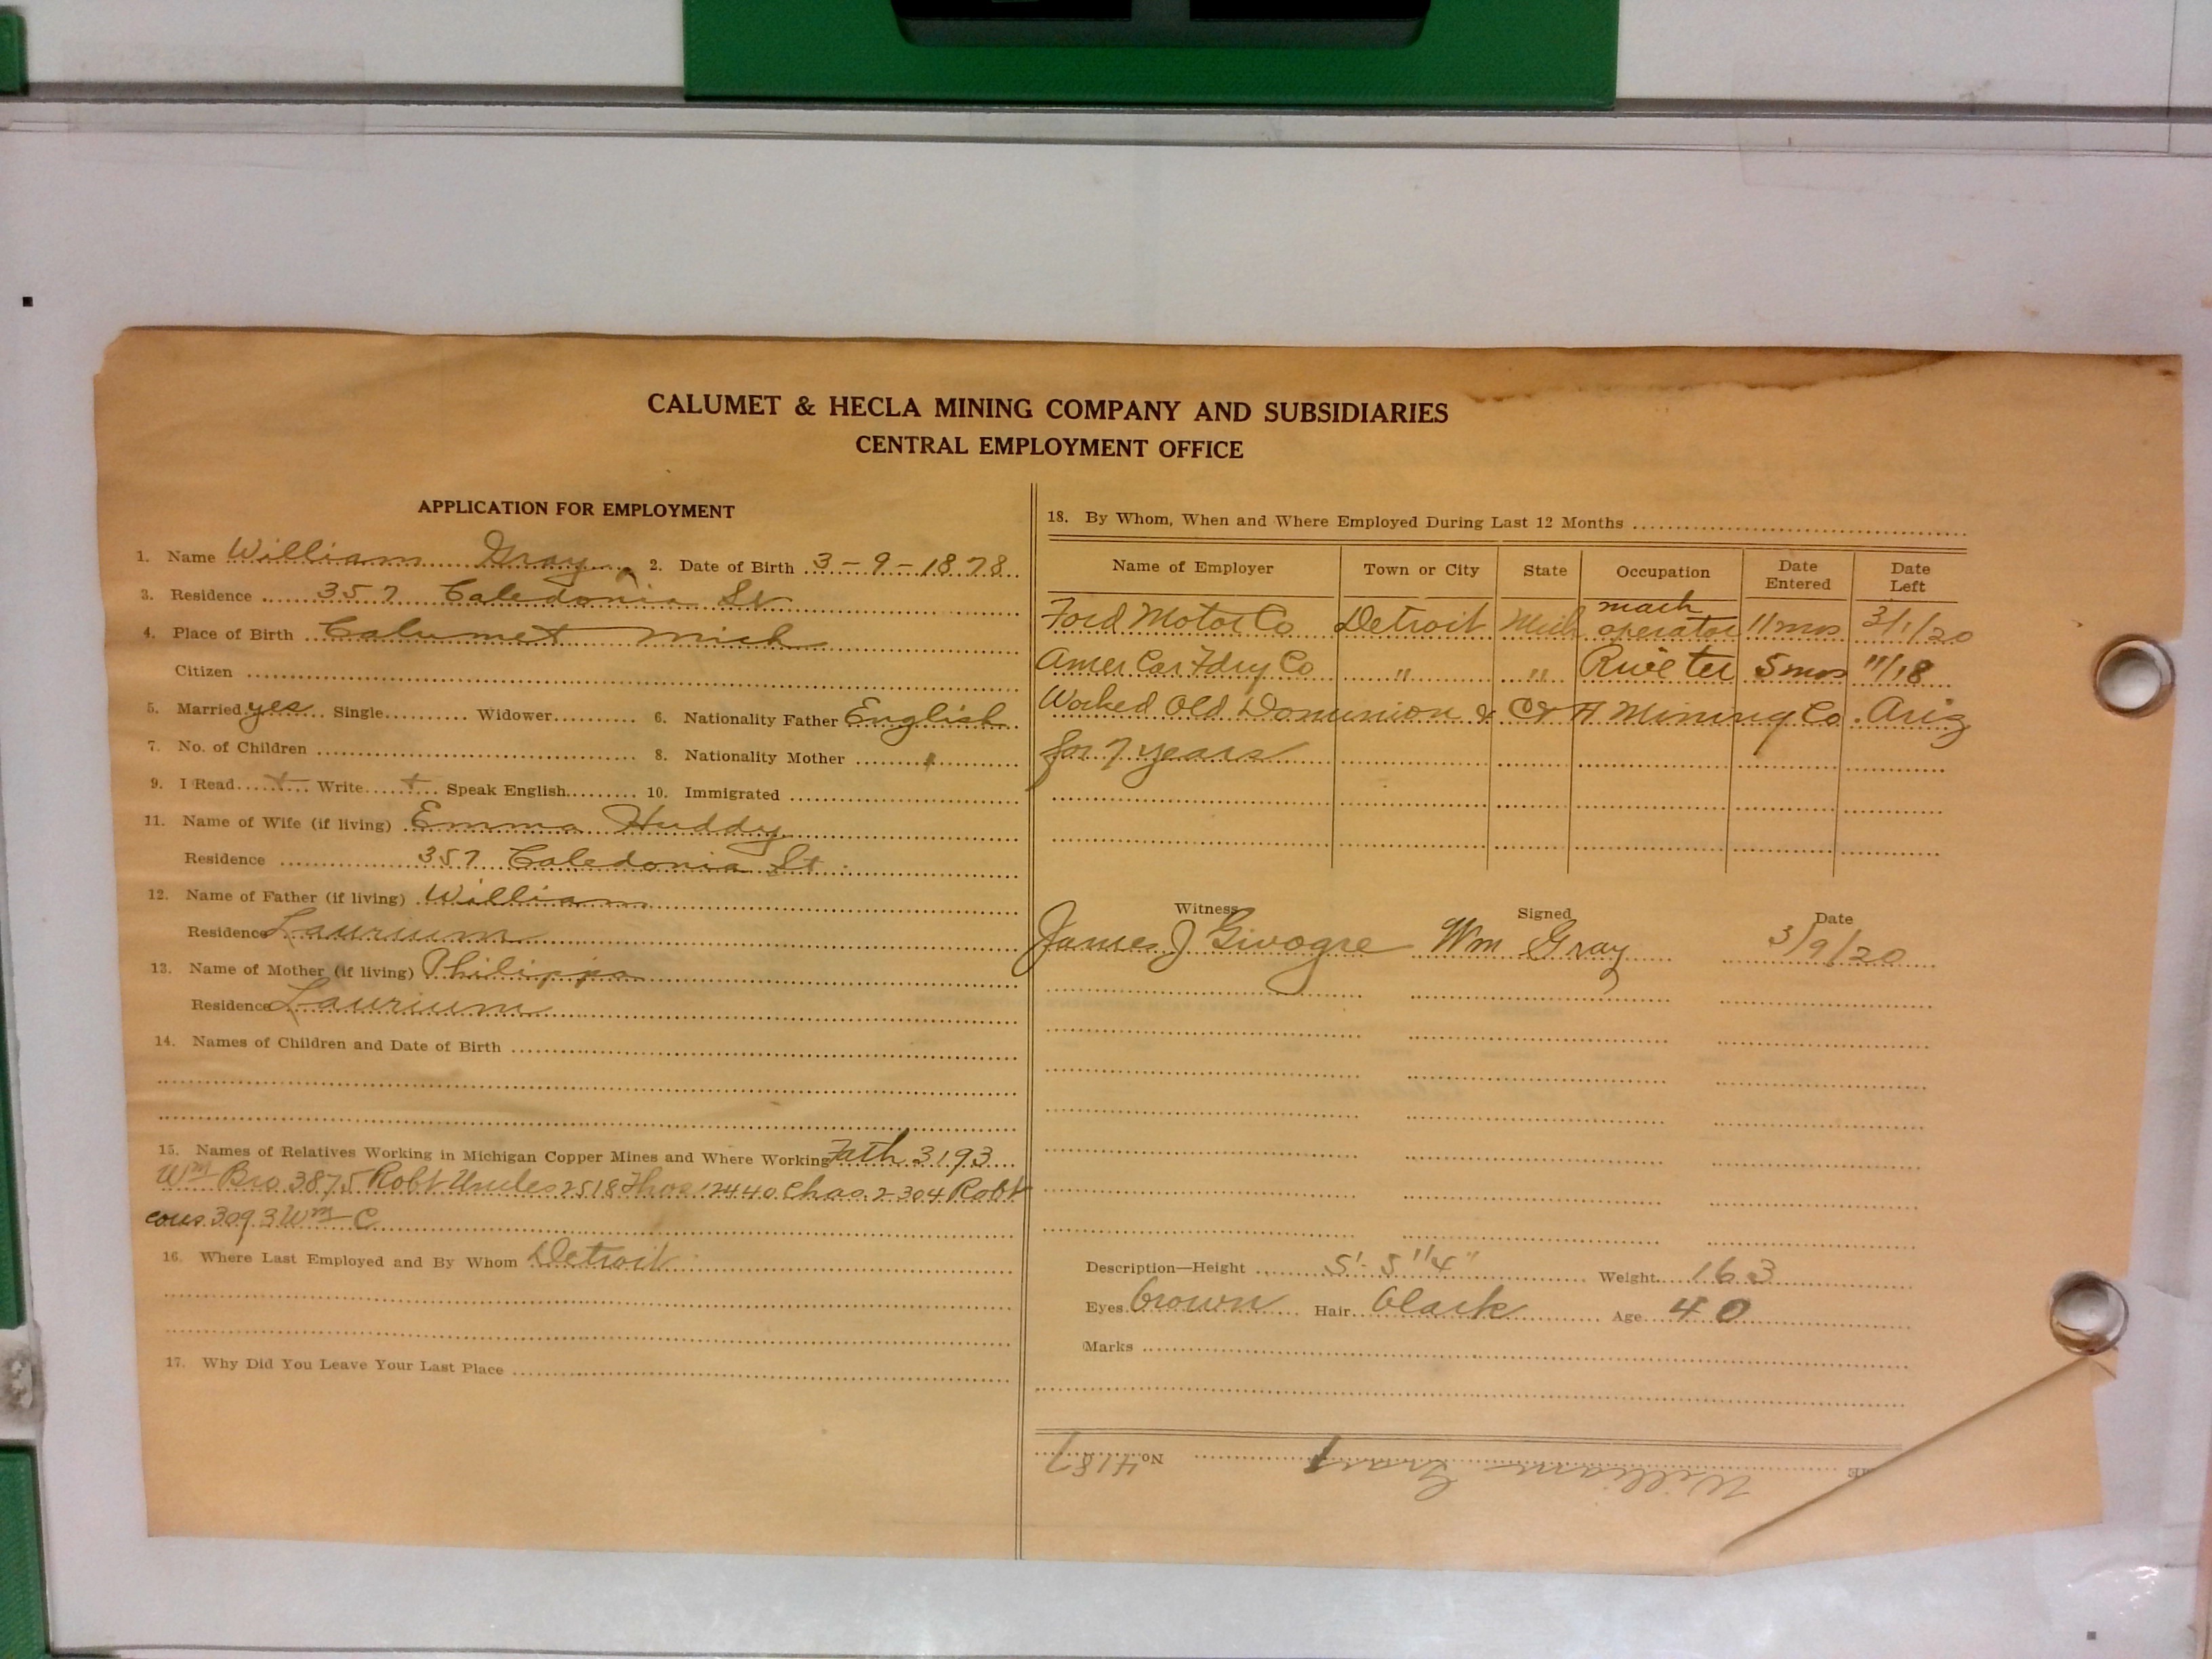 CALUMET & HECLA MINING COMPANY AND SUBSIDIARIES
CENTRAL EMPLOYMENT OFFICE
APPLICATION FOR EMPLOYMENT
1. Name William Gray 2. Date of Birth 3-9-1878
3. Residence 357 Caledonia St
4. Place of Birth Calumet Mich
Citizen
5. Married yes Single Widower 6. Nationality Father English
7. No. of Children 8. Nationality Mother "
9. I Read + Write + Speak English 10. Immigrated
11. Name of Wife (if living) Emma Huddy
Residence 357 Caledonia St
12. Name of Father (if living) William
Residence Laurium
13. Name of Mother (if living) Philippa
Residence Laurium
14. Names of Children and Date of Birth
15. Names of Relatives Working in Michigan Copper Mines and Where Working Fath 3193
Wm Bro 3875 Robt Uncles 2518 Thos 12440 Chas 2304 Robt
cous 3093 Wm C
16. Where Last Employed and By Whom Detroit
17. Why Did You Leave Your Last Place
18. By Whom, When and Where Employed During Last 12 Months
Name of Employer Town or City State Occupation Date Entered Date Left
Ford Motor Co Detroit Mich mach operator 11 mos 3/1/20
Amer Car Fdry Co " " Riveter 5 mos 11/18
Worked Old Dominion & C & A Mining Co. Ariz
for 7 years
Witness Signed Date
James J Givogre Wm Gray 3/9/20
Description—Height 5'-5 1/4" Weight 163
Eyes brown Hair black Age 40
Marks
William Gray No 4187